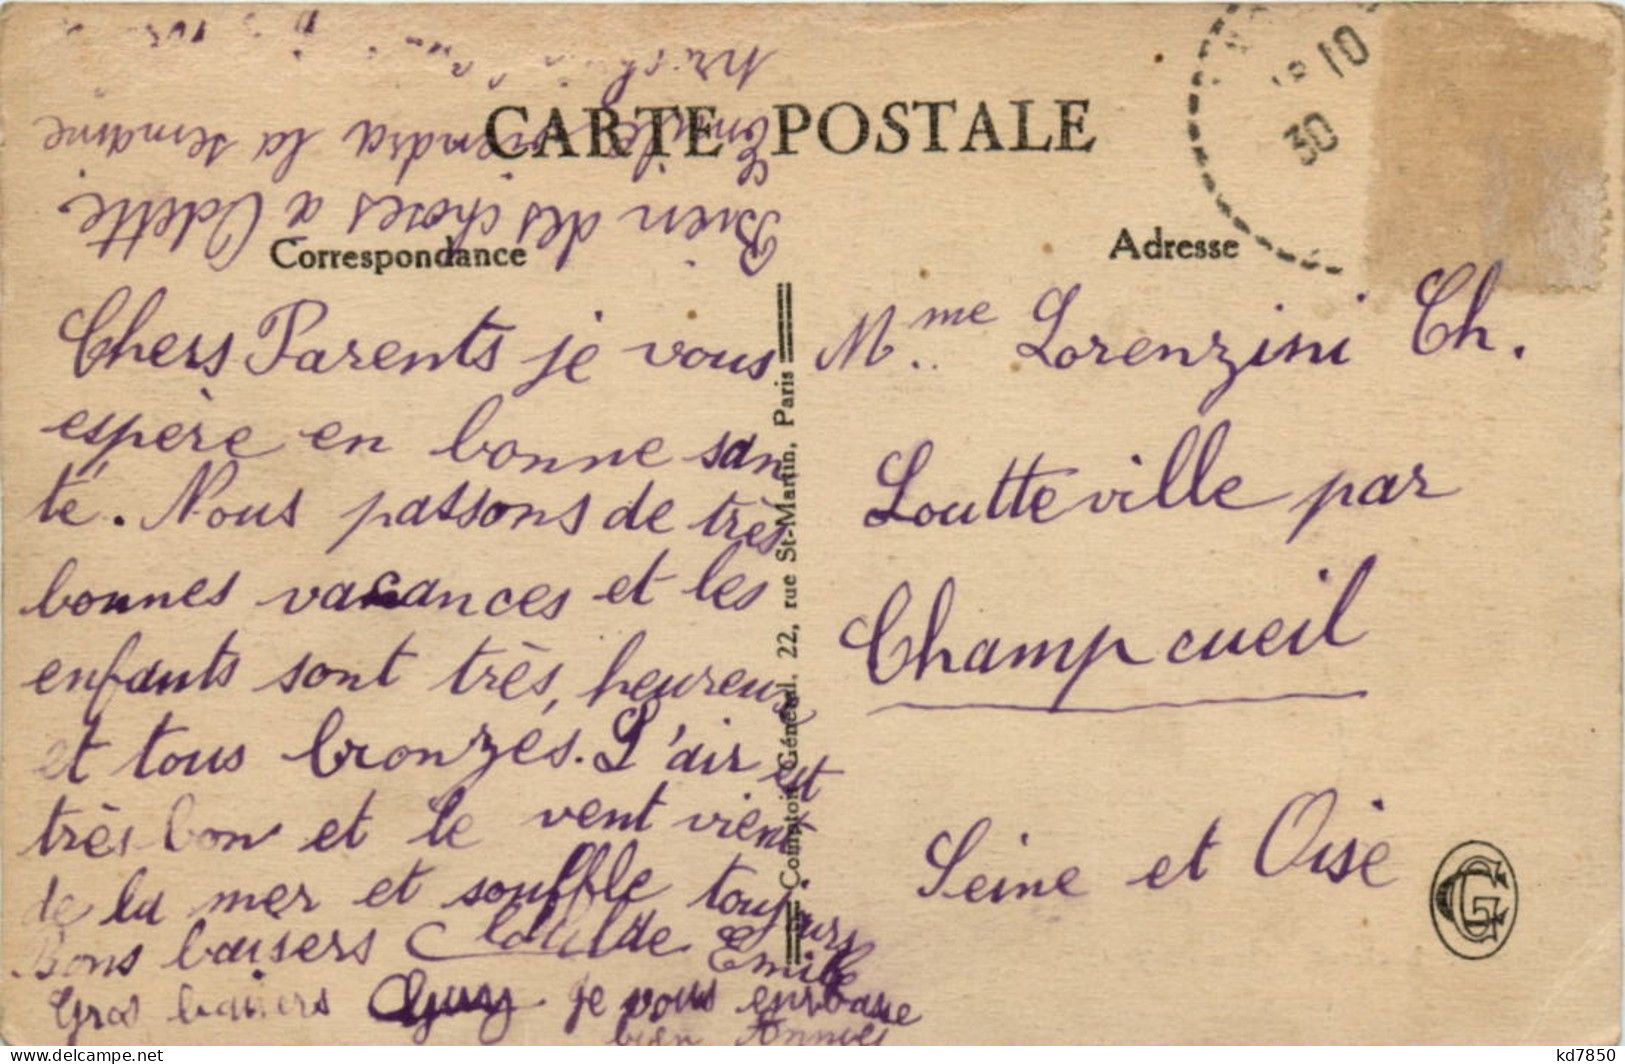 CARTE POSTALE
Correspondance
Adresse
Chers Parents je vous
espère en bonne san
té. Nous passons de très
bonnes vacances et les
enfants sont très, heureux
et tous bronzés. L'air est
très bon et le vent vient
de la mer et souffle toujours
Bons baisers Clotilde Emile
Gros baisers Guy je vous embrasse
bien
Bien des choses a Odette.
Emile viendra la semaine
Comptoir Général, 22, rue St-Martin, Paris
30 10
Mme Lorenzini Ch.
Loutteville par
Champcueil
Seine et Oise
CG
kd7850